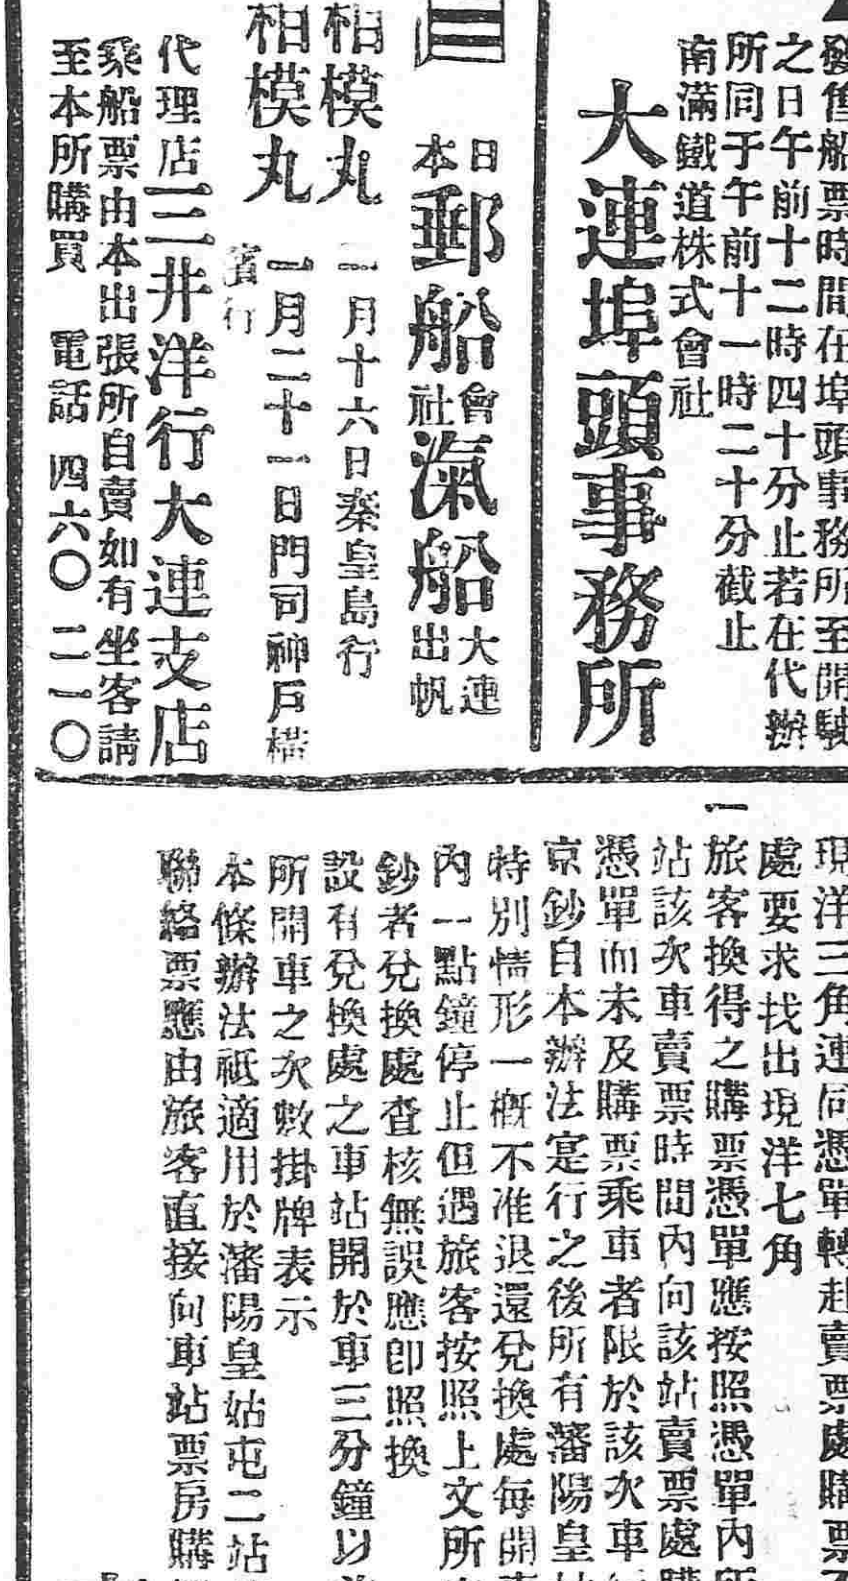 發售船票時間在埠頭事務所至開駛
之日午前十二時四十分止若在代辦
所同于午前十一時二十分截止
南滿鐵道株式會社
大連埠頭事務所
日本郵船會社滊船大連出帆
相模丸 一月十六日秦皇島行
相模丸 一月二十一日門司神戶橫
濱行
代理店三井洋行大連支店
乘船票由本出張所自賣如有坐客請
至本所購買 電話 四六〇 二一〇
現洋三角連同憑單轉赴賣票處購票
處要求找出現洋七角
一旅客換得之購票憑單應按照憑單內所
站該次車賣票時間內向該站賣票處購
憑單而未及購票乘車者限於該次車
京鈔自本辦法寔行之後所有瀋陽皇
特別情形一概不准退還兌換處每開
內一點鐘停止但遇旅客按照上文所
鈔者兌換處查核無誤應卽照換
設有兌換處之車站開於車三分鐘以
所開車之次數掛牌表示
本條辦法祗適用於瀋陽皇姑屯二站
聯絡票應由旅客直接向車站票房購